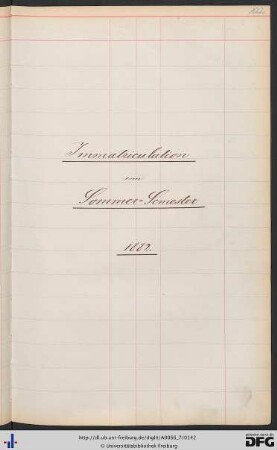 Immatriculation
Sommer-Semester
1882.
http://dl.ub.uni-freiburg.de/diglit/A0066_7/0142
© Universitätsbibliothek Freiburg
gefördert durch die
DFG